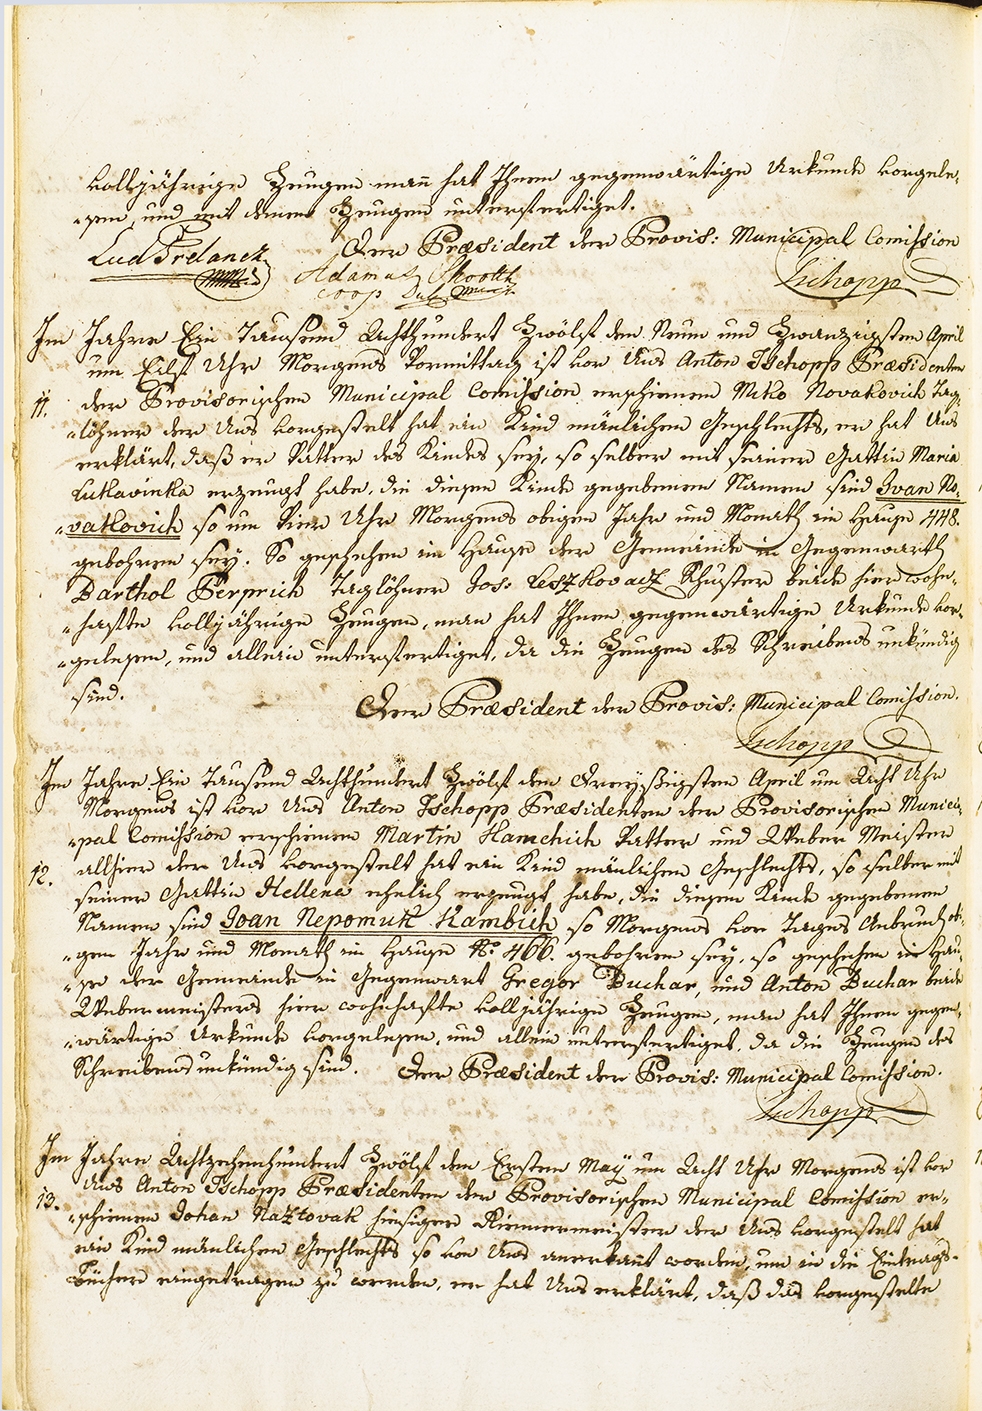 volljährige Zeugen man̄ hat Ihnen gegenwärtige Urkunde vorgele¬
„sen, und mit denen Zeugen unterfertiget.
Der Præsident der Provis: Municipal Comission
Lud Predanek Adamus
coop
Tschopp
Im Jahre Ein Tausend Achthundert Zwölf den Neun und Zwanzigsten April
um Eilf Uhr Morgens Vormittag ist vor Uns Anton Tschopp Præsidenten
11. der Provisorischen Municipal Comission erschienen Miko Novakovich Tag„
„löhner der Uns vorgestelt hat ein Kind mänlichen Geschlechts, er hat Uns
erklärt, daß er Vatter des Kindes sey, so selber mit seiner Gattin Maria
Lukavinka erzeugt habe, die diesen Kinde gegebenen Namen sind Ivan No„
„vakovich so um Vier Uhr Morgens obigen Jahr und Monath im Hause 448.
gebohren sey. So geschehen im Hause der Gemeinde in Gegenwarth
Barthol Perprich Taglöhner Jos: Leszkovacz Schuster beide hier wohn„
„hafte volljährige Zeugen, man hat Ihnen gegenwärtige Urkunde vor„
„gelesen, und allein unterfertiget, da die Zeugen des Schreibens unkündig
sind.
Der Præsident der Provis: Municipal Comission.
Tschopp
Im Jahre Ein Tausend Achthundert Zwölf den Dreyßigsten April um Acht Uhr
Morgens ist vor Uns Anton Tschopp Præsidenten der Provisorischen Munici„
„pal Comission erschienen Martin Hamchich Vatter und Weber Meister
12. allhier der Uns vorgestelt hat ein Kind mänlichen Geschlechts, so selber mit
seiner Gattin Hellena ehelich erzeugt habe, die diesen Kinde gegebenen
Namen sind Joan Nepomuk Kambich so Morgens vor Tages Anbruch obi„
„gen Jahr und Monath im Hause No. 466. gebohren sey, so geschehen im Hau„
„se der Gemeinde in Gegenwart Gregor Buchar, und Anton Buchar beide
Webermeisters hier wohnhafte volljährige Zeugen, man hat Ihnen gegen„
„wärtige Urkunde vorgelesen, und allein unterfertiget, da die Zeugen des
Schreibens unkündig sind. Der Præsident der Provis: Municipal Comission.
Tschopp
Im Jahre Achtzehenhundert Zwölf den Ersten May um Acht Uhr Morgens ist vor
13. Uns Anton Tschopp Præsidenten der Provisorischen Municipal Comission er„
„schienen Johan Naztovak hiesiger Riemermeister der Uns vorgestelt hat
ein Kind mänlichen Geschlechts so von Uns anerkant worden, um in die Eintrags¬
Bücher eingetragen zu werden, er hat Uns erklärt, daß das vorgestelte